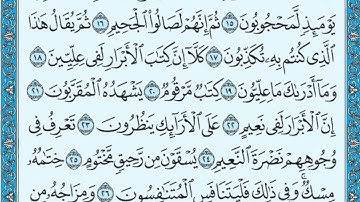 يَوْمَئِذٍ لَّمَحْجُوبُونَ ١٥ ثُمَّ إِنَّهُمْ لَصَالُوا۟ ٱلْجَحِيمِ ١٦ ثُمَّ يُقَالُ هَٰذَا
ٱلَّذِى كُنتُم بِهِۦ تُكَذِّبُونَ ١٧ كَلَّآ إِنَّ كِتَٰبَ ٱلْأَبْرَارِ لَفِى عِلِّيِّينَ ١٨
وَمَآ أَدْرَىٰكَ مَا عِلِّيُّونَ ١٩ كِتَٰبٌ مَّرْقُومٌ ٢٠ يَشْهَدُهُ ٱلْمُقَرَّبُونَ ٢١
إِنَّ ٱلْأَبْرَارَ لَفِى نَعِيمٍ ٢٢ عَلَى ٱلْأَرَآئِكِ يَنظُرُونَ ٢٣ تَعْرِفُ فِى
وُجُوهِهِمْ نَضْرَةَ ٱلنَّعِيمِ ٢٤ يُسْقَوْنَ مِن رَّحِيقٍ مَّخْتُومٍ ٢٥ خِتَٰمُهُۥ
مِسْكٌ ۚ وَفِى ذَٰلِكَ فَلْيَتَنَافَسِ ٱلْمُتَنَٰفِسُونَ ٢٦ وَمِزَاجُهُۥ مِن